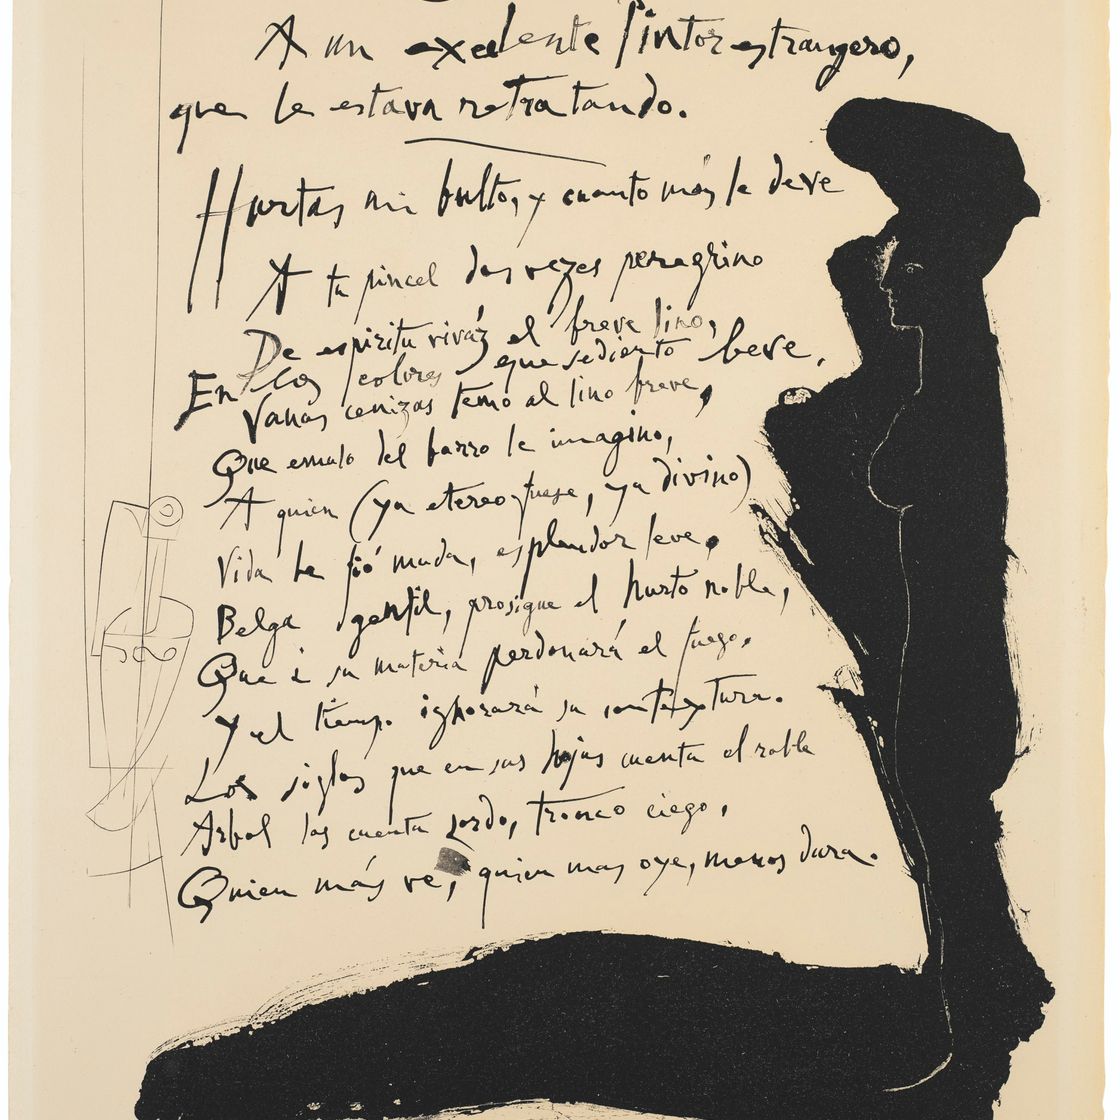 A un excelente Pintor estrangero,
que le estava retratando.
Hurtas mi bulto, y cuanto más le deve
A tu pincel dos vezes peregrino
De espiritu viváz el breve lino,
En los colores que sediento beve,
Vanas cenizas temo al lino breve,
Que emulo del barro le imagino,
A quien (ya etereo fuese, ya divino)
Vida le fió muda, esplendor leve,
Belga gentil, prosigue el hurto noble,
Que á su materia perdonará el fuego,
Y el tiempo ignorará su contextura.
Los siglos que en sus hojas cuenta el roble
Arbol los cuenta sordo, tronco ciego,
Quien más ve, quien mas oye, menos dura.